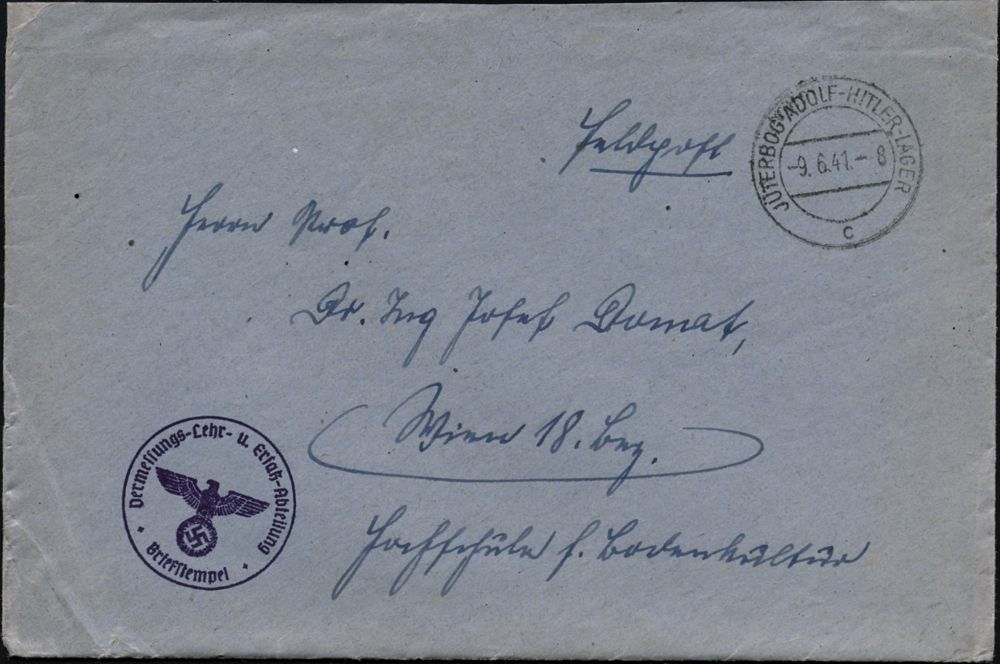 Feldpost
JÜTERBOG-ADOLF-HITLER-LAGER
-9.6.41.-8
c
Herrn Prof.
Dr. Ing Josef Donat,
Wien 18. Bez.
Hochschule f. Bodenkultur
Vermessungs-Lehr- u. Ersatz-Abteilung
Briefstempel